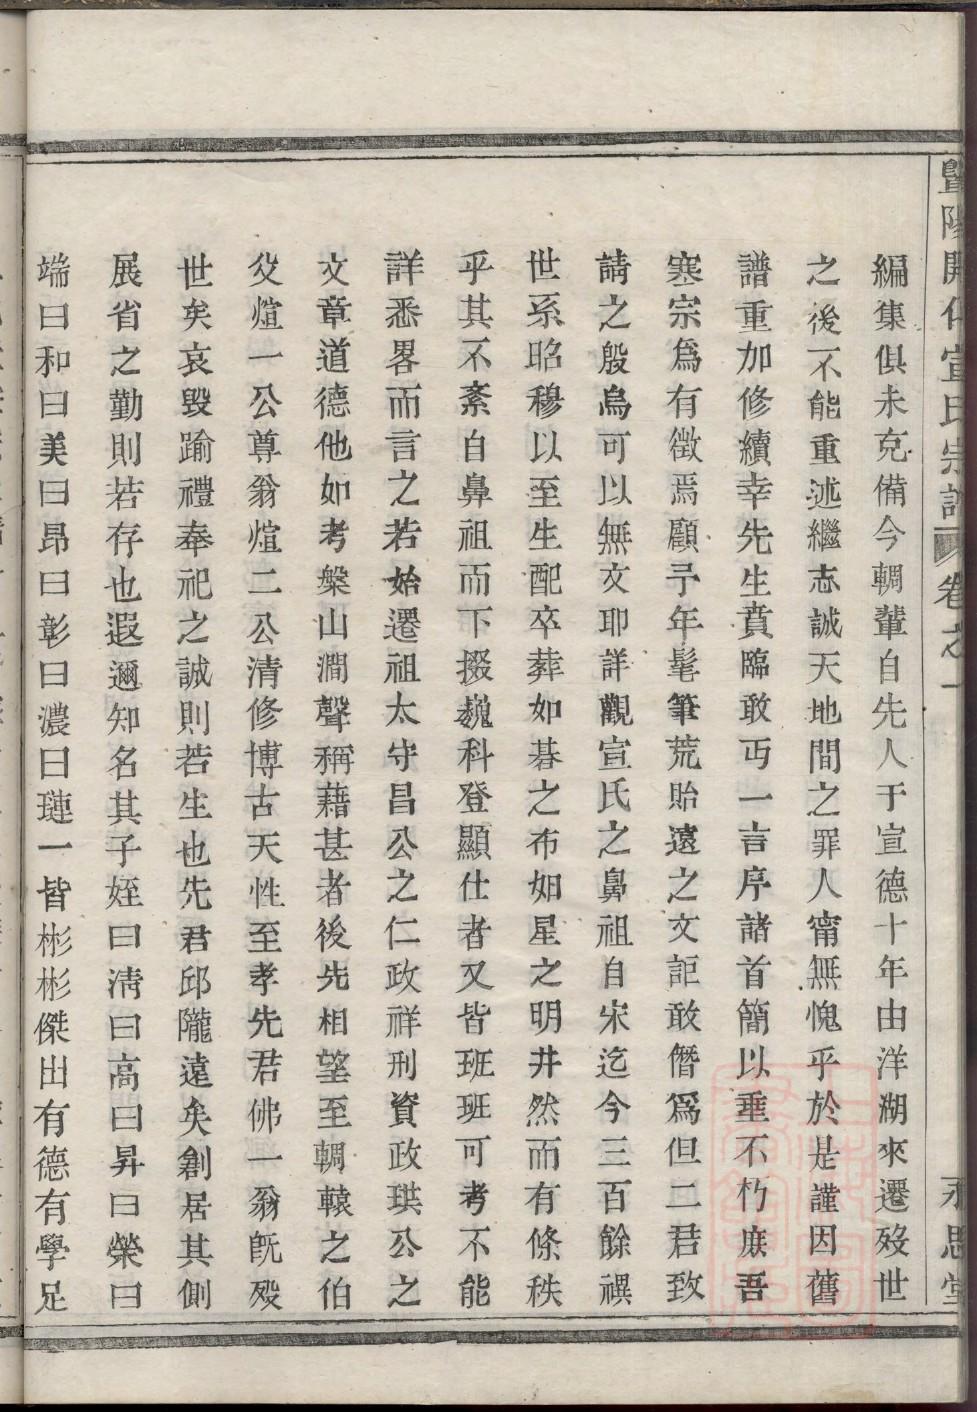 暨陽開化宣氏宗譜 卷之一 永思堂
編集俱未克備今輖輩自先人于宣德十年由洋湖來遷歿世
之後不能重述繼志誠天地間之罪人甯無愧乎於是謹因舊
譜重加修續幸先生賁臨敢丐一言序諸首簡以垂不朽庶吾
寒宗爲有徵焉顧予年髦筆荒貽遠之文詎敢僭爲但二君致
請之殷烏可以無文耶詳觀宣氏之鼻祖自宋迄今三百餘禩
世系昭穆以至生配卒葬如碁之布如星之明井然而有條秩
乎其不紊自鼻祖而下掇巍科登顯仕者又皆班班可考不能
詳悉畧而言之若始遷祖太守昌公之仁政祥刑資政珙公之
文章道德他如考槃山澗聲稱藉甚者後先相望至輖轅之伯
父煊一公尊翁煊二公清修博古天性至孝先君佛一翁旣殁
世矣哀毀踰禮奉祀之誠則若生也先君邱隴遠矣創居其側
展省之勤則若存也遐邇知名其子姪曰淸曰高曰昇曰榮曰
端曰和曰美曰昂曰彰曰濃曰璉一皆彬彬傑出有德有學足